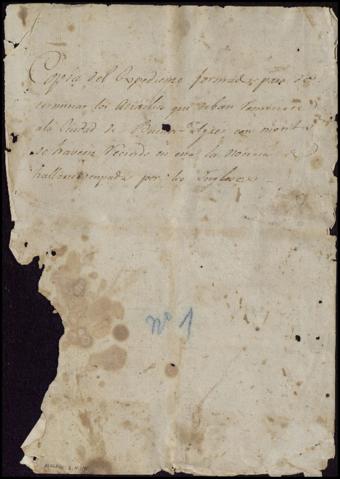 Copia del Expediente formado para de
terminar los Auxilios que deban
ala Ciudad de Buenos Ayres con motivo
de haverse en ella la Noticia
hallarse por los Ingleses
Nº 1